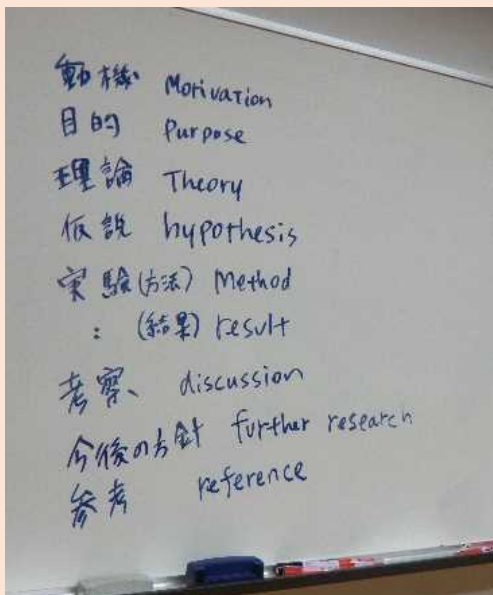 動機 Motivation
目的 Purpose
理論 Theory
仮説 hypothesis
実験(方法) Method
: (結果) result
考察、 discussion
今後の方針 further research
参考 reference